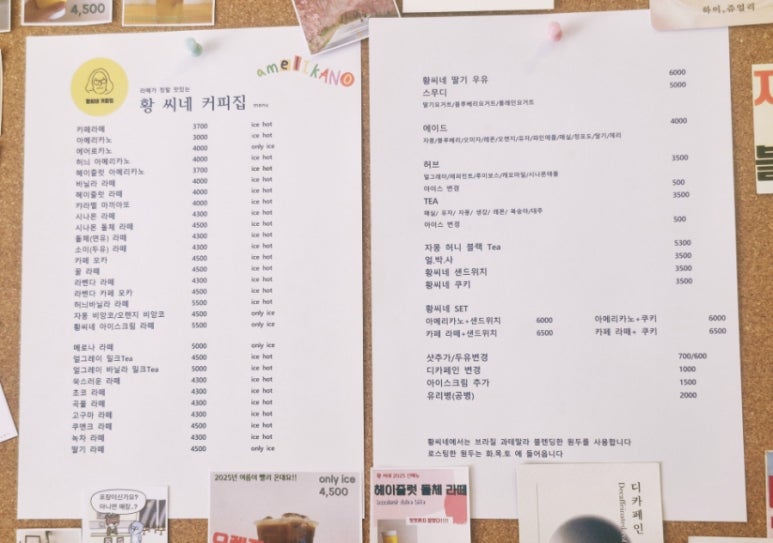 4,500
하이,쥬얼리
황씨네 커피집
라떼가 정말 맛있는
황 씨네 커피집 menu
ameliKANO
카페라떼 3700 ice hot
아메리카노 3000 ice hot
에어로카노 4000 only ice
허니 아메리카노 4000 ice hot
헤이즐럿 아메리카노 3700 ice hot
바닐라 라떼 4000 ice hot
헤이즐럿 라떼 4000 ice hot
카라멜 마끼아또 4000 ice hot
시나몬 라떼 4300 ice hot
시나몬 돌체 라떼 4500 ice hot
돌체(연유) 라떼 4300 ice hot
소이(두유) 라떼 4300 ice hot
카페 모카 4500 ice hot
꿀 라떼 4500 ice hot
라벤다 라떼 4300 ice hot
라벤다 카페 모카 4500 ice hot
허니바닐라 라떼 5500 ice hot
자몽 비앙코/오렌지 비앙코 4500 only ice
황씨네 아이스크림 라떼 5500 only ice
메로나 라떼 5000 only ice
얼그레이 밀크Tea 4500 ice hot
얼그레이 바닐라 밀크Tea 5000 ice hot
쑥스러운 라떼 4300 ice hot
초코 라떼 4300 ice hot
곡물 라떼 4300 ice hot
고구마 라떼 4300 ice hot
4500 ice hot
녹차 라떼 4300 ice hot
딸기 라떼 4500 only ice
황씨네 딸기 우유 6000
스무디 5000
딸기요거트/블루베리요거트/플레인요거트
에이드 4000
자몽/블루베리/오미자/레몬/오렌지/유자/파인애플/매실/청포도/딸기/체리
허브 3500
얼그레이/페퍼민트/루이보스/캐모마일/시나몬애플
아이스 변경 500
TEA 3500
매실/ 유자/ 자몽/ 생강/ 레몬/ 복숭아/대추
아이스 변경 500
자몽 허니 블랙 Tea 5300
얼.박.사 3500
황씨네 샌드위치 3500
황씨네 쿠키 3500
황씨네 SET
아메리카노+샌드위치 6000 아메리카노+쿠키 6000
카페 라떼+샌드위치 6500 카페 라떼+ 쿠키 6500
샷추가/두유변경 700/600
디카페인 변경 1000
아이스크림 추가 1500
유리병(공병) 2000
황씨네에서는 브라질 과테말라 블렌딩한 원두를 사용합니다
로스팅한 원두는 화.목.토 에 들어옵니다
포장이신가요?
아니면 매장..?
2025년 여름이 빨리 온데요!!
only ice
4,500
황 씨네 2025 신메뉴
헤이즐럿 돌체 라떼
디카페인
Decaffeinated